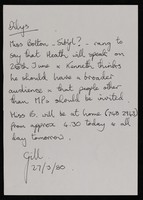 Dilys
Miss Botton - Sibyl? - rang to
say that Heath will speak on
26th June & Kenneth thinks
he should have a broader
audience & that people other
than MPs should be invited.
Miss B. will be at home (748 2463)
from approx 4.30 today & all
day tomorrow.
Gill
27/3/80